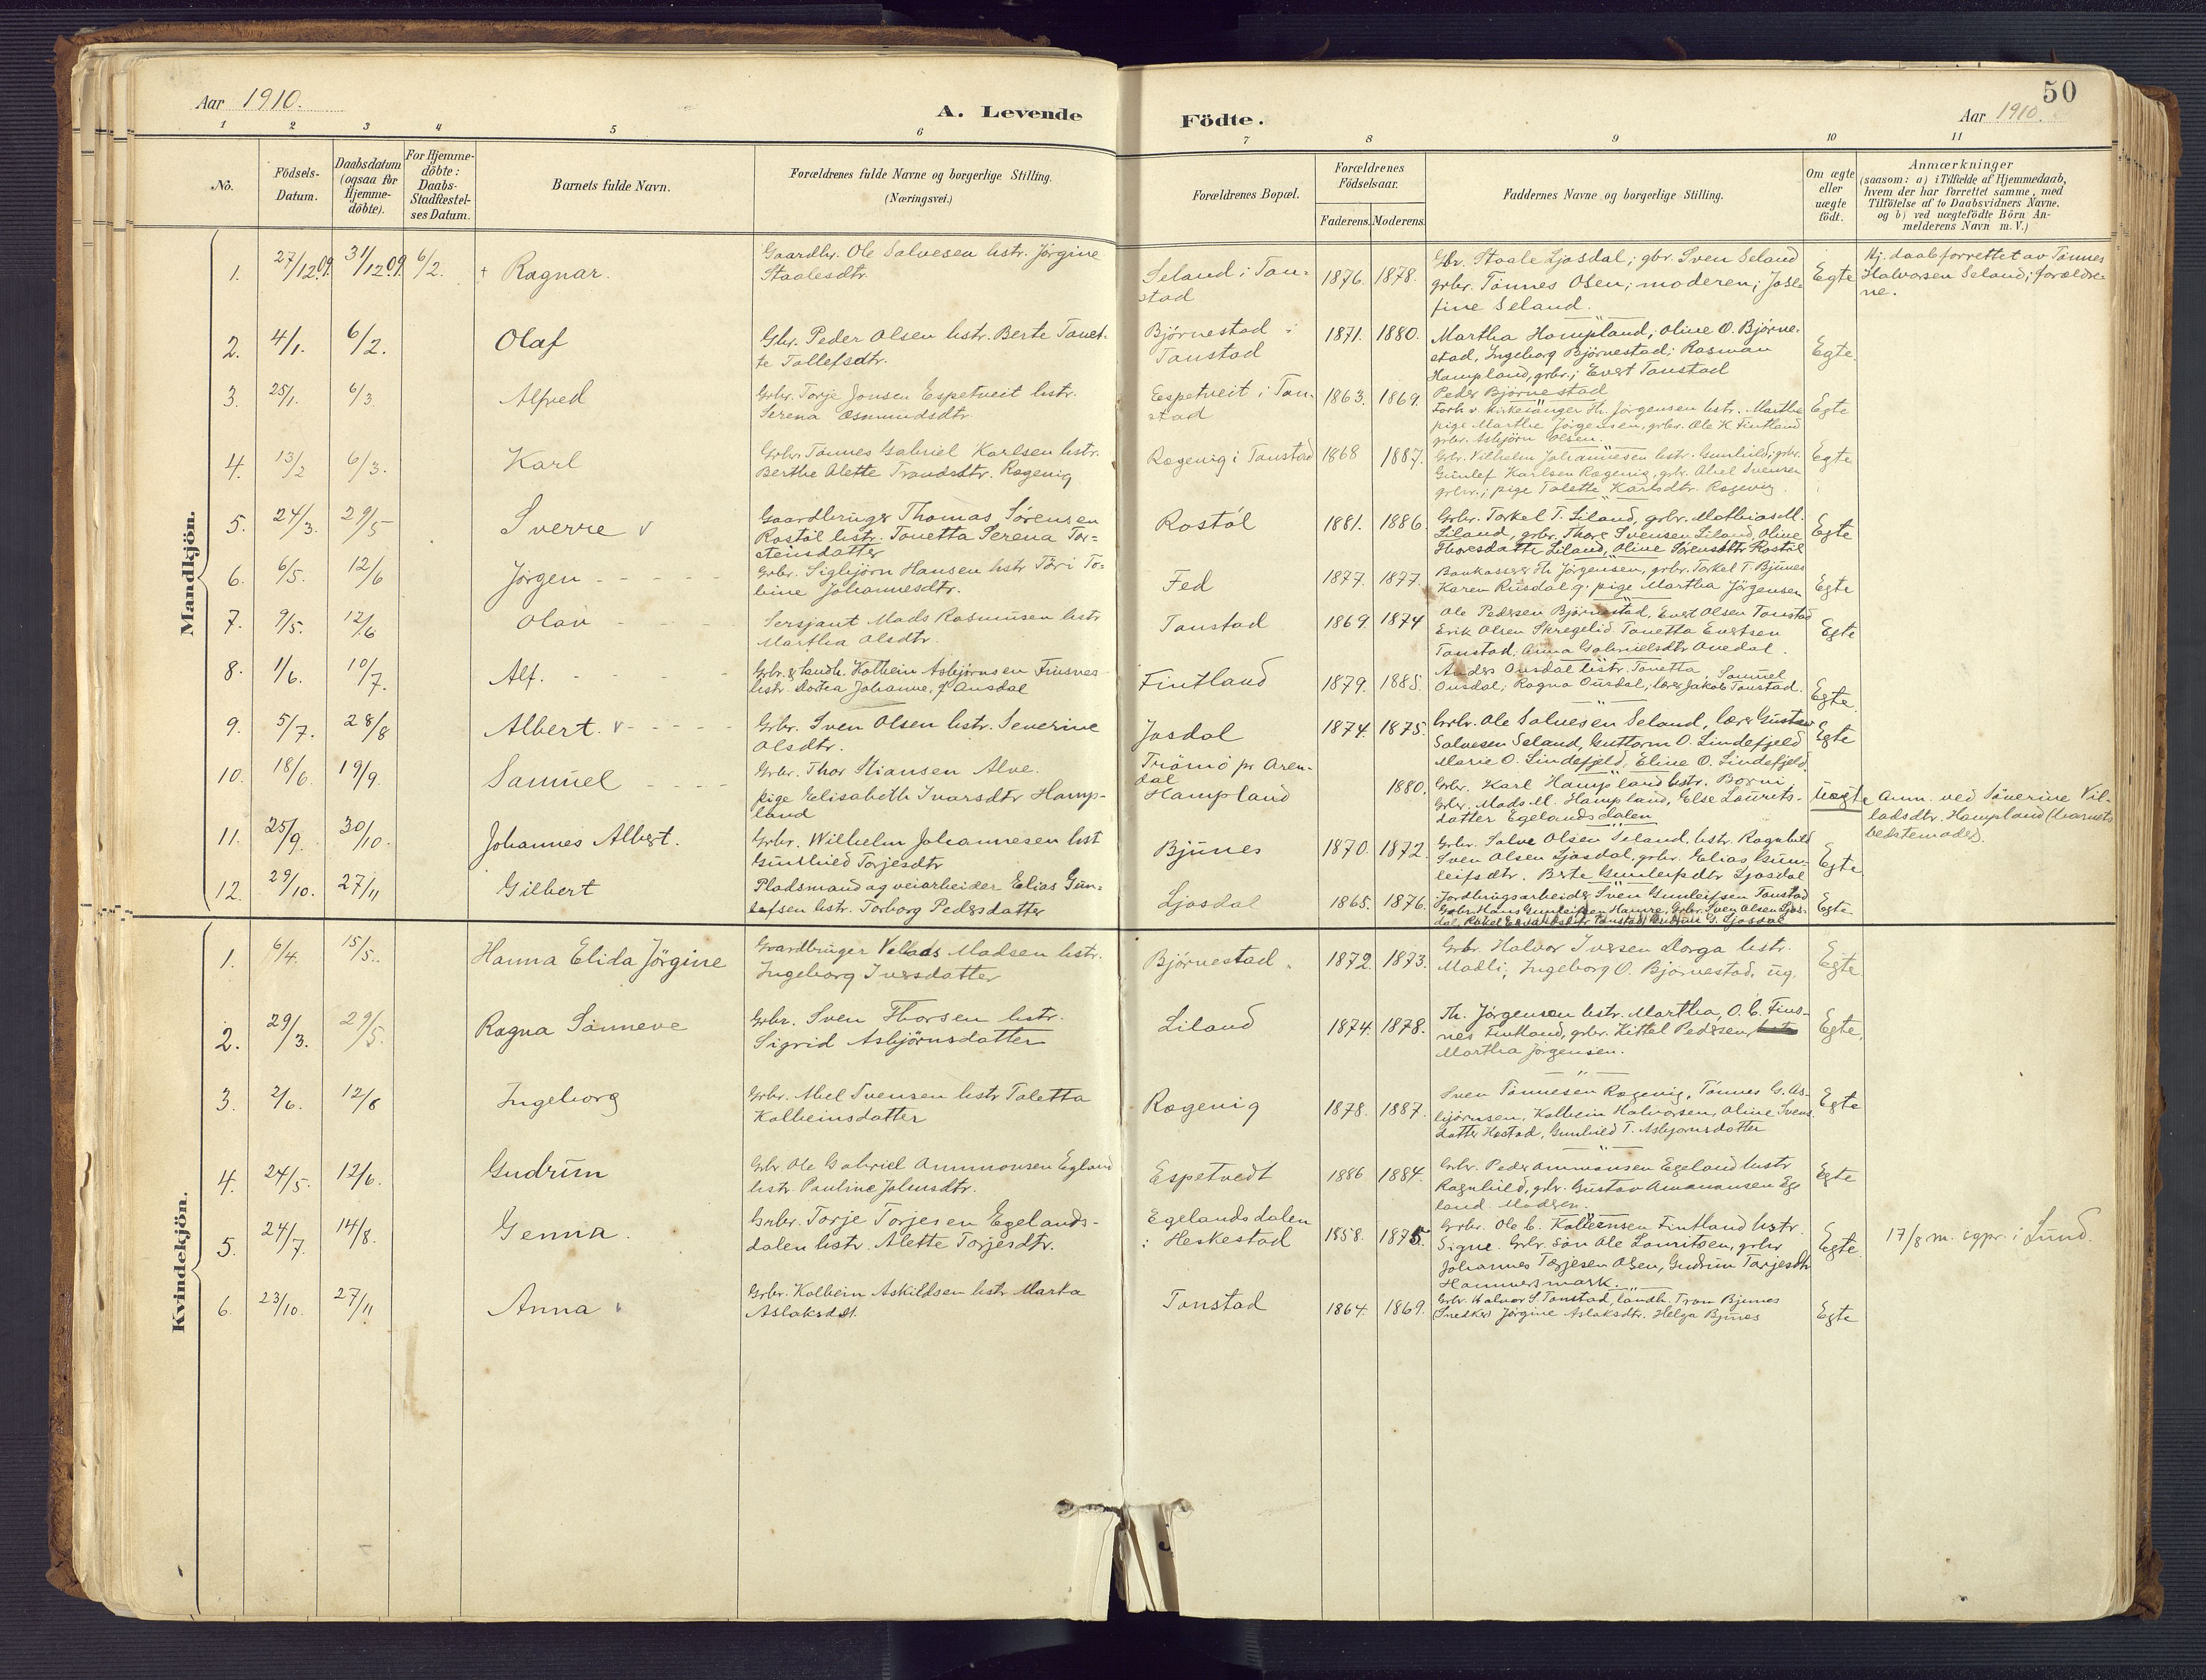 50
Aar 1910.
A. Levende Födte.
Aar 1910.
1 2 3 4 5 6 7 8 9 10 11
No.
Födsels-Datum.
Daabsdatum (ogsaa for Hjemme-döbte).
For Hjemme-döbte: Daabs-Stadfæstel-ses Datum.
Barnets fulde Navn.
Forældrenes fulde Navne og borgerlige Stilling.
(Næringsvei.)
Forældrenes Bopæl.
Forældrenes Födselsaar.
Faderens. Moderens.
Faddernes Navne og borgerlige Stilling.
Om ægte eller uægte födt.
Anmærkninger
(saasom: a) i Tilfælde af Hjemmedaab,
hvem der har forrettet samme, med
Tilföielse af to Daabsvidners Navne,
og b) ved uægtefödte Börn An-
melderens Navn m. V.)
Mandkjön.
1. 27/12.09. 31/12.09. 6/2. + Ragnar.
Gaardbr. Ole Salvesen hstr. Jörgine
Staalesdtr.
Seland i Ton-
stad
1876. 1878.
Gbr. Staale Ljosdal; gbr. Sven Seland
grbr. Tönnes Olsen; moderen; Jose-
fine Seland.
Egte
Hj. daab forrettet av Tönnes
Halvorsen Seland; forældre-
ne.
2. 4/1. 6/2. Olaf
Gbr. Peder Olsen hstr. Berte Tonet-
te Tollefsdtr.
Björnestad i
Tonstad
1871. 1880.
Martha Hompland; Oline O. Björne-
stad, Ingeborg Björnestad; Rasman
Hompland, grbr.; Evert Tonstad
Peder Björnestad
Egte.
3. 25/1. 6/3 Alfred
Grbr. Torje Jonsen Espetveit hstr.
Serena Osmundsdtr.
Espetveit i Ton-
stad
1863. 1869.
Forh. v. Kirkesanger Th. Jörgensen hstr. Martha
pige Martha Jörgensen, grbr. Ole K. Fintland
grbr. Asbjörn Olsen.
Egte
4. 13/2 6/3. Karl
Grbr. Tönnes Gabriel Karlsen hstr.
Berthe Alette Trondsdtr. Rægevig
Rægevig i Tonstad
1868 1887.
Grbr. Vilhelm Johannesen hstr. Gunhild; grbr.
Gunlef Karlsen Rægevig, grbr. Abel Svensen
grbr.; pige Talette Karlsdtr. Rægevig
Egte
5. 24/3. 29/5 Sverre v
Gaardbruger Thomas Sörensen
Rostöl hstr. Tonetta Serena Tor-
steinsdatter
Rostöl
1881. 1886
Grbr. Torkel T. Liland, grbr. Mathias M.
Liland, grbr. Thore Svensen Liland, Oline
Thoresdatte Liland, Oline Sörensdttr Rostöl
Egte
6. 6/5. 12/6 Jörgen
Grbr. Sigbjörn Hansen hstr Töri To-
bine Johannesdtr.
Fed
1877. 1877.
Bankasserer Th Jörgensen, grbr. Torkel T. Bjunes
Karen Rusdal g. pige Martha Jörgensen
Egte
7. 9/5. 12/6 Olav
Sersjant Mads Rasmusen hstr
Martha Olsdtr.
Tonstad
1869. 1874
Ole Pedersen Björnestad, Evert Olsen Tonstad
Erik Olsen Skregelid Tonetta Evertsen
Tonstad, Anna Gabrielsdtr Ovedal.
Egte
8. 1/6. 10/7. Alf.
Grbr. & landh. Kolbein Asbjörnsen Finsnes
hstr. Dortea Johanne, f. Ousdal
Fintland
1879. 1885.
Anders Ousdal hstr. Tonetta, Samuel
Ousdal; Ragna Ousdal; lærer Jakob Tonstad.
Egte.
9. 5/7. 28/8 Albert. v
Grbr. Sven Olsen hstr. Severine
Olsdtr.
Josdal
1874. 1875.
Grbr. Ole Salvesen Seland, lærer Gustav
Salvesen Seland, Guttorm O. Lindefjeld
Marie O. Lindefjeld, Eline O. Lindefjeld.
Egte
10. 18/6. 19/9. Samuel
Grbr. Thor Stiansen Alve.
pige Elisabeth Ivarsdtr Homp-
land
Trömö pr Aren-
dal
Hompland
1880.
Grbr. Karl Hompland hstr. Borni,
Grbr. Mads M. Hompland, Else Laurits-
datter Egelandsdalen
Uegte
Anm. ved Sönerine Vil-
ladsdtr. Hompland (barnets
bedstemoder).
11. 25/9. 30/10. Johannes Albert.
Grbr. Wilhelm Johannesen hst
Gunhild Torjesdtr
Bjunes
1870. 1872.
Grbr. Salve Olsen Seland, hstr. Ragnhild
Sven Olsen Ljosdal, grbr. Elias Gun-
leifsdtr. Berte Gunleifsdtr Ljosdal
Egte
12. 29/10. 27/11 Gilbert
Pladsmand og veiarbeider Elias Gun-
lefsen hstr. Torborg Pedersdatter
Ljosdal
1865. 1876.
Jordbrugsarbeider Sven Gunleifsen Tonstad
Grbr. Hans Gunleifsen Hanne, Grbr. Sven Olsen Ljos-
dal, Rakel Tonstad, Gudrun G. Ljosdal
Egte
Kvindekjön.
1. 6/4. 15/5. Hanna Elida Jörgine
Gaardbruger Vellads Madsen hstr.
Ingeborg Iversdatter
Björnestad.
1872. 1873.
Grbr. Halvor Iversen Dorga hstr.
Madli, Ingeborg O. Björnestad, ug.
Egte
2. 29/3. 29/5. Ragna Sönneve
Grbr. Sven Thorsen hstr.
Sigrid Asbjörnsdatter
Liland
1874. 1878.
Th. Jörgensen hstr. Martha, O. C. Fins-
nes Fintland, grbr. Kittel Pedersen,
Martha Jörgensen.
Egte.
3. 2/6. 12/6 Ingeborg
Grbr. Abel Svensen hstr Taletta
Kolbeinsdatter
Rægevig
1878. 1887.
Sven Tönnesen Rægevig, Tönnes G. As-
björnsen, Kolbein Halvorsen, Oline Svens
datter Hostad, Gunhild T. Asbjörnsdatter
Egte
4. 24/5. 12/6. Gudrun
Grbr. Ole Gabriel Ammonsen Egland
hstr. Pauline Johnsdtr.
Espetvedt
1886 1884.
Grbr. Peder Ammonsen Egeland hstr
Ragnhild, grbr. Gustav Ammonsen Ege
land. Moderen.
Egte
5. 24/7. 14/8. Genna.
Grbr. Torje Torjesen Egelands-
dalen hstr. Alette Torjesdtr.
Egelandsdalen
i Heskestad
1858. 1875.
Grbr. Ole C. Kolbeinsen Fintland hstr.
Signe. Grbr. sön Ole Lauritsen, grbr
Johannes Torjesen Olsen, Gudrun Torjesdtr
Hammersmark.
Egte.
17/8 m. egpr. i Lund.
6. 23/10. 27/11 Anna v
Grbr. Kolbein Askildsen hstr. Marta
Aslaksdtt.
Tonstad
1864. 1869.
Grbr. Halvor S. Tonstad, landh. Tron Bjunes
Snedker Jörgine Aslaksdtr. Helga Bjunes
Egte